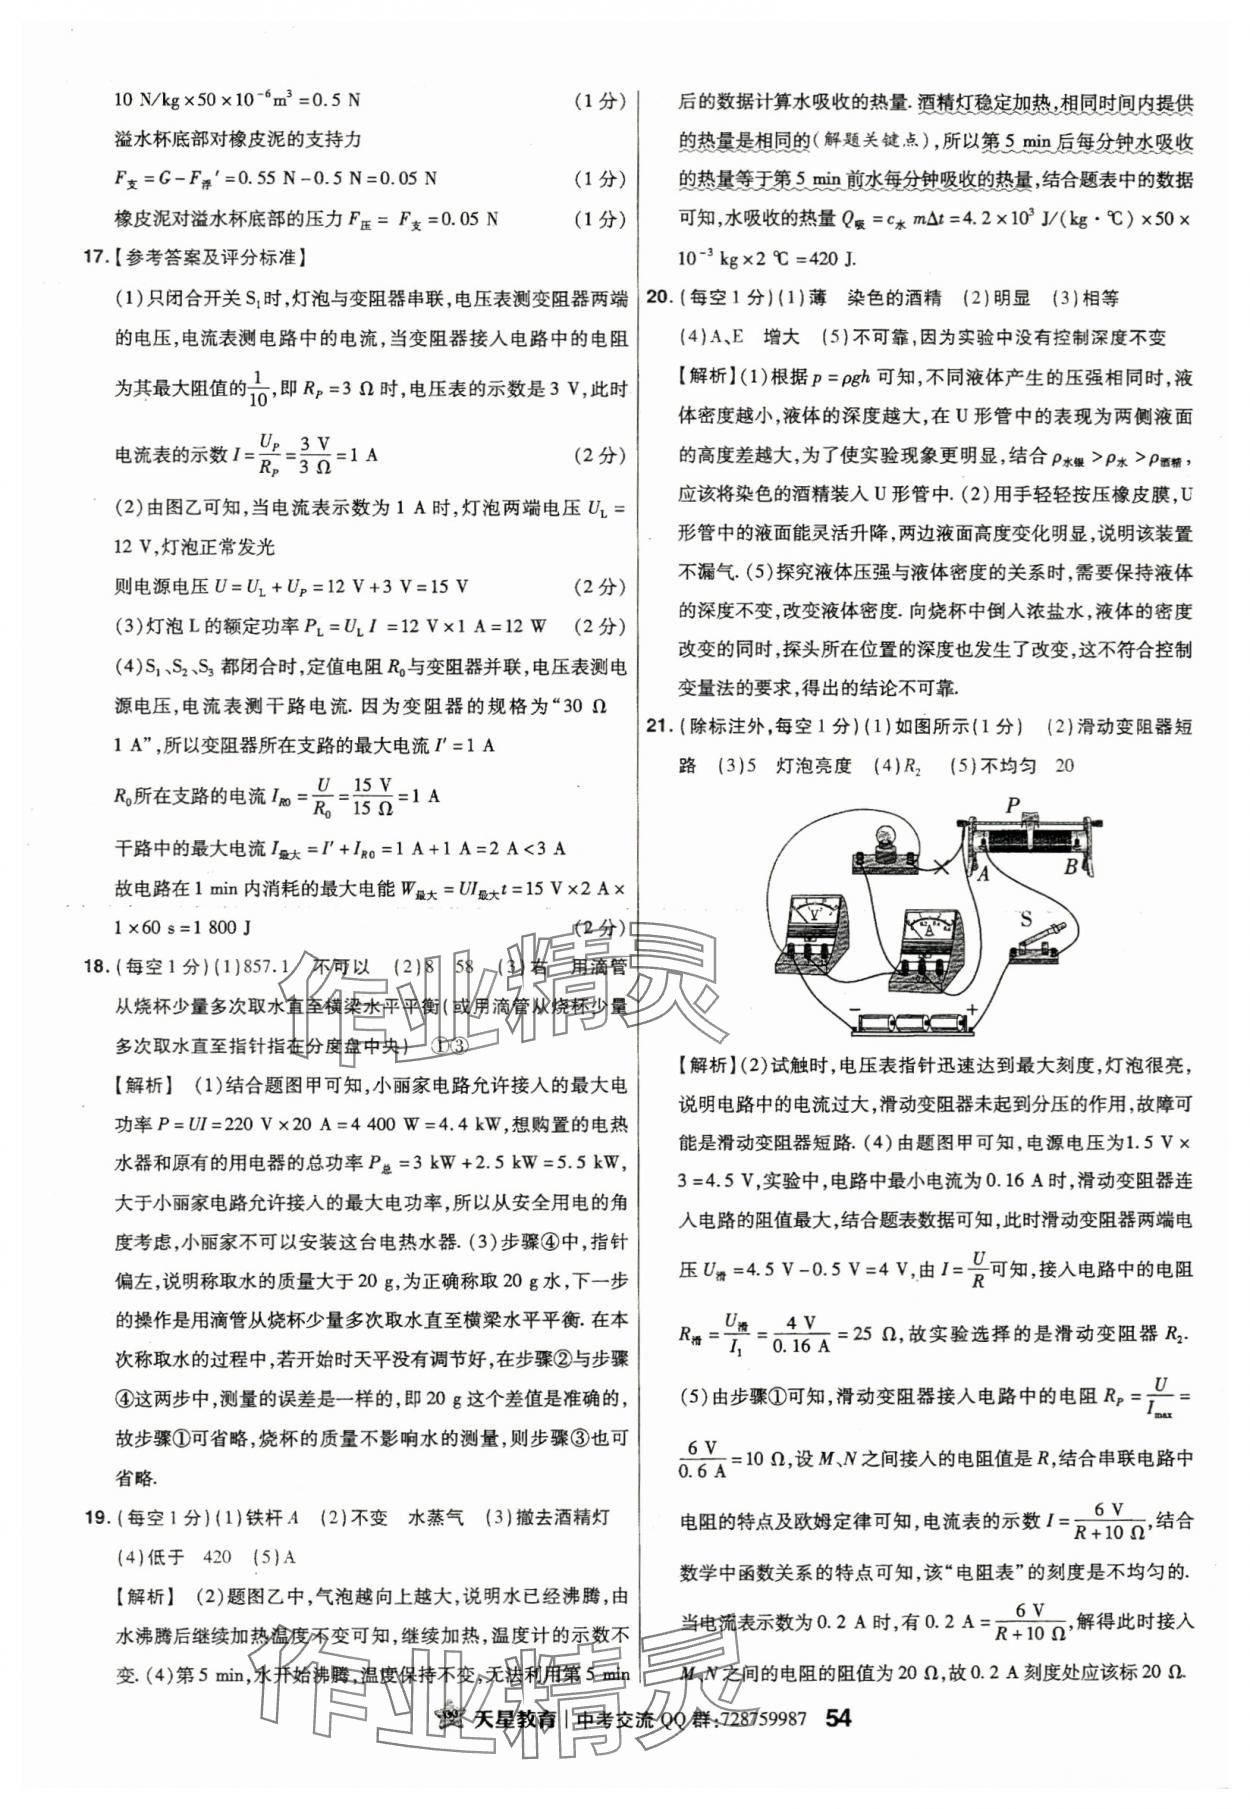 10 N/kg×50×10⁻⁶m³=0.5 N (1 分)
溢水杯底部对橡皮泥的支持力
F支=G-F浮′=0.55 N-0.5 N=0.05 N (1 分)
橡皮泥对溢水杯底部的压力 F压= F支=0.05 N (1 分)
17.【参考答案及评分标准】
(1)只闭合开关 S₁时,灯泡与变阻器串联,电压表测变阻器两端
的电压,电流表测电路中的电流,当变阻器接入电路中的电阻
为其最大阻值的1/10,即 R_P=3 Ω 时,电压表的示数是 3 V,此时
电流表的示数 I=U_P/R_P=3 V/3 Ω=1 A (2 分)
(2)由图乙可知,当电流表示数为 1 A 时,灯泡两端电压 U_L=
12 V,灯泡正常发光
则电源电压 U=U_L+U_P=12 V+3 V=15 V (2 分)
(3)灯泡 L 的额定功率 P_L=U_L I =12 V×1 A=12 W (2 分)
(4)S₁、S₂、S₃ 都闭合时,定值电阻 R₀与变阻器并联,电压表测电
源电压,电流表测干路电流. 因为变阻器的规格为“30 Ω
1 A”,所以变阻器所在支路的最大电流 I′=1 A
R₀所在支路的电流 I_R0=U/R₀=15 V/15 Ω=1 A
干路中的最大电流 I最大=I′+I_R0=1 A+1 A=2 A<3 A
故电路在 1 min 内消耗的最大电能 W最大=UI最大t=15 V×2 A×
1×60 s=1 800 J (2 分)
18.(每空 1 分)(1)857.1 不可以 (2)8 58 (3)右 用滴管
从烧杯少量多次取水直至横梁水平平衡(或用滴管从烧杯少量
多次取水直至指针指在分度盘中央) ①③
【解析】 (1)结合题图甲可知,小丽家电路允许接入的最大电
功率 P=UI=220 V×20 A=4 400 W=4.4 kW,想购置的电热
水器和原有的用电器的总功率 P总=3 kW+2.5 kW=5.5 kW,
大于小丽家电路允许接入的最大电功率,所以从安全用电的角
度考虑,小丽家不可以安装这台电热水器. (3)步骤④中,指针
偏左,说明称取水的质量大于 20 g,为正确称取 20 g 水,下一步
的操作是用滴管从烧杯少量多次取水直至横梁水平平衡. 在本
次称取水的过程中,若开始时天平没有调节好,在步骤②与步骤
④这两步中,测量的误差是一样的,即 20 g 这个差值是准确的,
故步骤①可省略,烧杯的质量不影响水的测量,则步骤③也可
省略.
19.(每空 1 分)(1)铁杆 A (2)不变 水蒸气 (3)撤去酒精灯
(4)低于 420 (5)A
【解析】 (2)题图乙中,气泡越向上越大,说明水已经沸腾,由
水沸腾后继续加热温度不变可知,继续加热,温度计的示数不
变. (4)第 5 min,水开始沸腾,温度保持不变,无法利用第 5 min
后的数据计算水吸收的热量. 酒精灯稳定加热,相同时间内提供
的热量是相同的(解题关键点),所以第 5 min 后每分钟水吸收
的热量等于第 5 min 前水每分钟吸收的热量,结合题表中的数据
可知,水吸收的热量 Q吸=c水 mΔt=4.2×10³ J/(kg·℃)×50×
10⁻³ kg×2 ℃=420 J.
20.(每空 1 分)(1)薄 染色的酒精 (2)明显 (3)相等
(4)A、E 增大 (5)不可靠,因为实验中没有控制深度不变
【解析】(1)根据 p=ρgh 可知,不同液体产生的压强相同时,液
体密度越小,液体的深度越大,在 U 形管中的表现为两侧液面
的高度差越大,为了使实验现象更明显,结合 ρ水银>ρ水>ρ酒精,
应该将染色的酒精装入 U 形管中. (2)用手轻轻按压橡皮膜,U
形管中的液面能灵活升降,两边液面高度变化明显,说明该装置
不漏气. (5)探究液体压强与液体密度的关系时,需要保持液体
的深度不变,改变液体密度. 向烧杯中倒入浓盐水,液体的密度
改变的同时,探头所在位置的深度也发生了改变,这不符合控制
变量法的要求,得出的结论不可靠.
21.(除标注外,每空 1 分)(1)如图所示(1 分) (2)滑动变阻器短
路 (3)5 灯泡亮度 (4)R₂ (5)不均匀 20
P
A B
S
V
A
- +
【解析】(2)试触时,电压表指针迅速达到最大刻度,灯泡很亮,
说明电路中的电流过大,滑动变阻器未起到分压的作用,故障可
能是滑动变阻器短路. (4)由题图甲可知,电源电压为1.5 V×
3=4.5 V,实验中,电路中最小电流为 0.16 A 时,滑动变阻器连
入电路的阻值最大,结合题表数据可知,此时滑动变阻器两端电
压 U滑=4.5 V-0.5 V=4 V,由 I=U/R可知,接入电路中的电阻
R滑=U滑/I₁=4 V/0.16 A=25 Ω,故实验选择的是滑动变阻器 R₂.
(5)由步骤①可知,滑动变阻器接入电路中的电阻 R_P=U/I_max=
6 V/0.6 A=10 Ω,设 M、N 之间接入的电阻值是 R,结合串联电路中
电阻的特点及欧姆定律可知,电流表的示数 I=6 V/(R+10 Ω),结合
数学中函数关系的特点可知,该“电阻表”的刻度是不均匀的.
当电流表示数为 0.2 A 时,有 0.2 A=6 V/(R+10 Ω),解得此时接入
M、N 之间的电阻的阻值为 20 Ω,故 0.2 A 刻度处应该标 20 Ω.
作业精灵
作业精灵
天星教育|中考交流QQ群:728759987 54